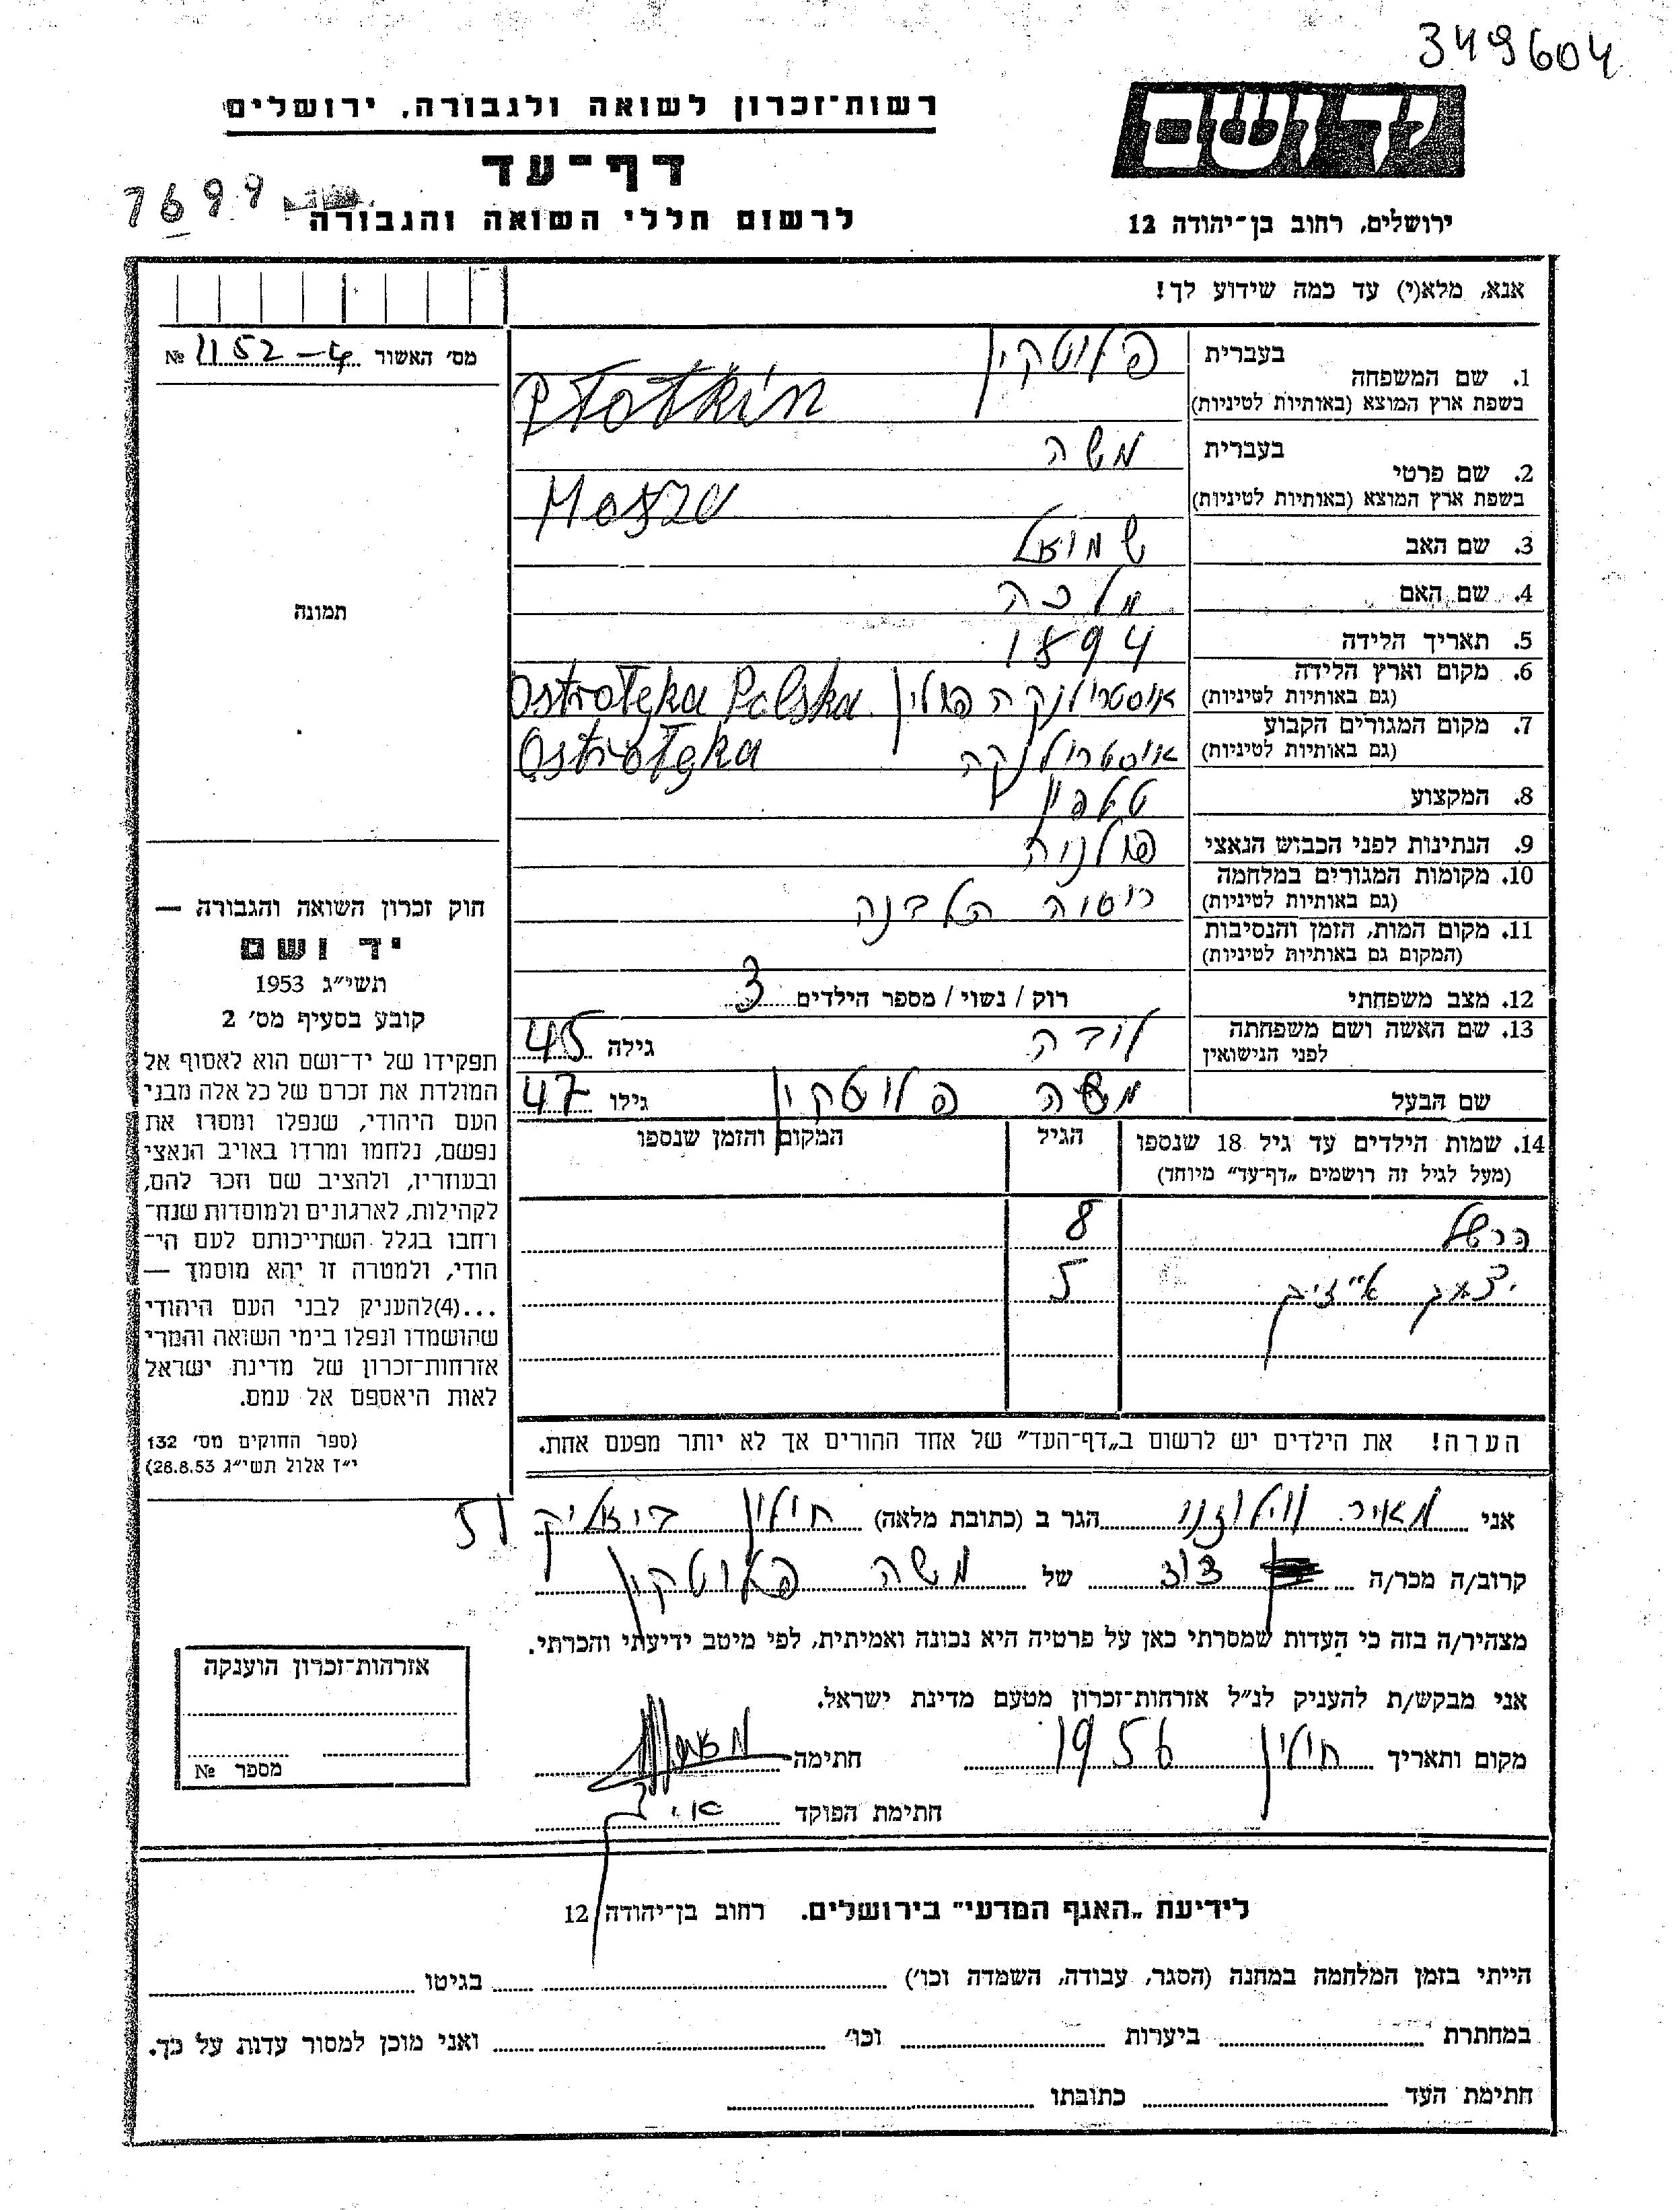 349604
יד ושם
רשות־זכרון לשואה ולגבורה, ירושלים
דף־עד
7699
לרשום חללי השואה והגבורה
ירושלים, רחוב בן־יהודה 12
אנא, מלא(י) עד כמה שידוע לך!
מס׳ האשור 1152-4 №
תמונה
חוק זכרון השואה והגבורה —
יד ושם
תשי״ג 1953
קובע בסעיף מס׳ 2
תפקידו של יד־ושם הוא לאסוף אל
המולדת את זכרם של כל אלה מבני
העם היהודי, שנפלו ומסרו את
נפשם, נלחמו ומרדו באויב הנאצי
ובעוזריו, ולהציב שם וזכר להם,
לקהילות, לארגונים ולמוסדות שנח־
רבו בגלל השתייכותם לעם הי־
הודי, ולמטרה זו יהא מוסמך —
...(4)להעניק לבני העם היהודי
שהושמדו ונפלו בימי השואה והמרי
אזרחות־זכרון של מדינת ישראל
לאות היאספם אל עמם.
(ספר החוקים מס׳ 132
י״ז אלול תשי״ג 28.8.53)
בעברית פלוטקין
1. שם המשפחה
בשפת ארץ המוצא (באותיות לטיניות) Płotkin
בעברית משה
2. שם פרטי
בשפת ארץ המוצא (באותיות לטיניות) Mosze
3. שם האב שמואל
4. שם האם מלכה
5. תאריך הלידה 1894
6. מקום וארץ הלידה
(גם באותיות לטיניות) אוסטרולנקה פולין Ostrołęka Polska
7. מקום המגורים הקבוע
(גם באותיות לטיניות) אוסטרולנקה Ostrołęka
8. המקצוע
9. הנתינות לפני הכבוש הנאצי פולנית
10. מקומות המגורים במלחמה
(גם באותיות לטיניות) רוסיה הלבנה
11. מקום המות, הזמן והנסיבות
(המקום גם באותיות לטיניות)
12. מצב משפחתי רוק / נשוי / מספר הילדים 3
13. שם האשה ושם משפחתה
לפני הנישואין לובה גילה 45
שם הבעל משה פלוטקין גילו 47
14. שמות הילדים עד גיל 18 שנספו הגיל המקום והזמן שנספו
(מעל לגיל זה רושמים „דף־עד״ מיוחד)
הרשל 8
יצחק אייזיק 5
הערה! את הילדים יש לרשום ב„דף־העד״ של אחד ההורים אך לא יותר מפעם אחת.
אני מאיר הגר ב (כתובת מלאה) חולון ביאליק 51
קרוב/ה מכר/ה של משה פלוטקין
מצהיר/ה בזה כי העדות שמסרתי כאן על פרטיה היא נכונה ואמיתית, לפי מיטב ידיעתי והכרתי.
אני מבקש/ת להעניק לנ״ל אזרחות־זכרון מטעם מדינת ישראל.
מקום ותאריך חולון 1956 חתימה
חתימת הפוקד
אזרחות־זכרון הוענקה
מספר №
לידיעת „האגף המדעי״ בירושלים. רחוב בן־יהודה 12
הייתי בזמן המלחמה במחנה (הסגר, עבודה, השמדה וכו׳) בגיטו
במחתרת ביערות וכו׳ ואני מוכן למסור עדות על כך.
חתימת העד כתובתו